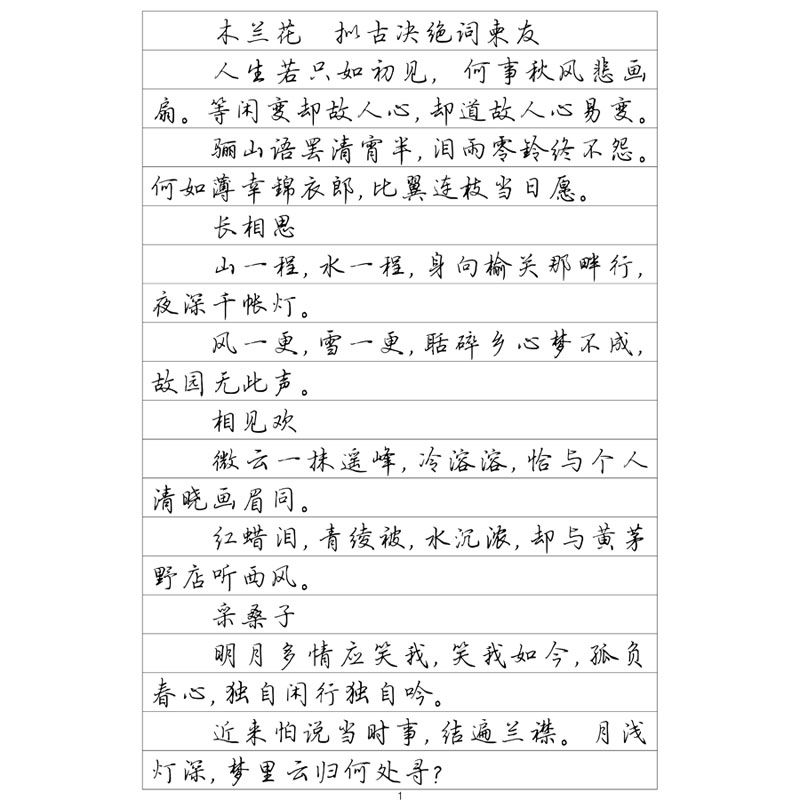 木兰花　拟古决绝词柬友
人生若只如初见，何事秋风悲画
扇。等闲变却故人心，却道故人心易变。
骊山语罢清宵半，泪雨零铃终不怨。
何如薄幸锦衣郎，比翼连枝当日愿。
长相思
山一程，水一程，身向榆关那畔行，
夜深千帐灯。
风一更，雪一更，聒碎乡心梦不成，
故园无此声。
相见欢
微云一抹遥峰，冷溶溶，恰与个人
清晓画眉同。
红蜡泪，青绫被，水沉浓，却与黄茅
野店听西风。
采桑子
明月多情应笑我，笑我如今，孤负
春心，独自闲行独自吟。
近来怕说当时事，结遍兰襟。月浅
灯深，梦里云归何处寻？
1